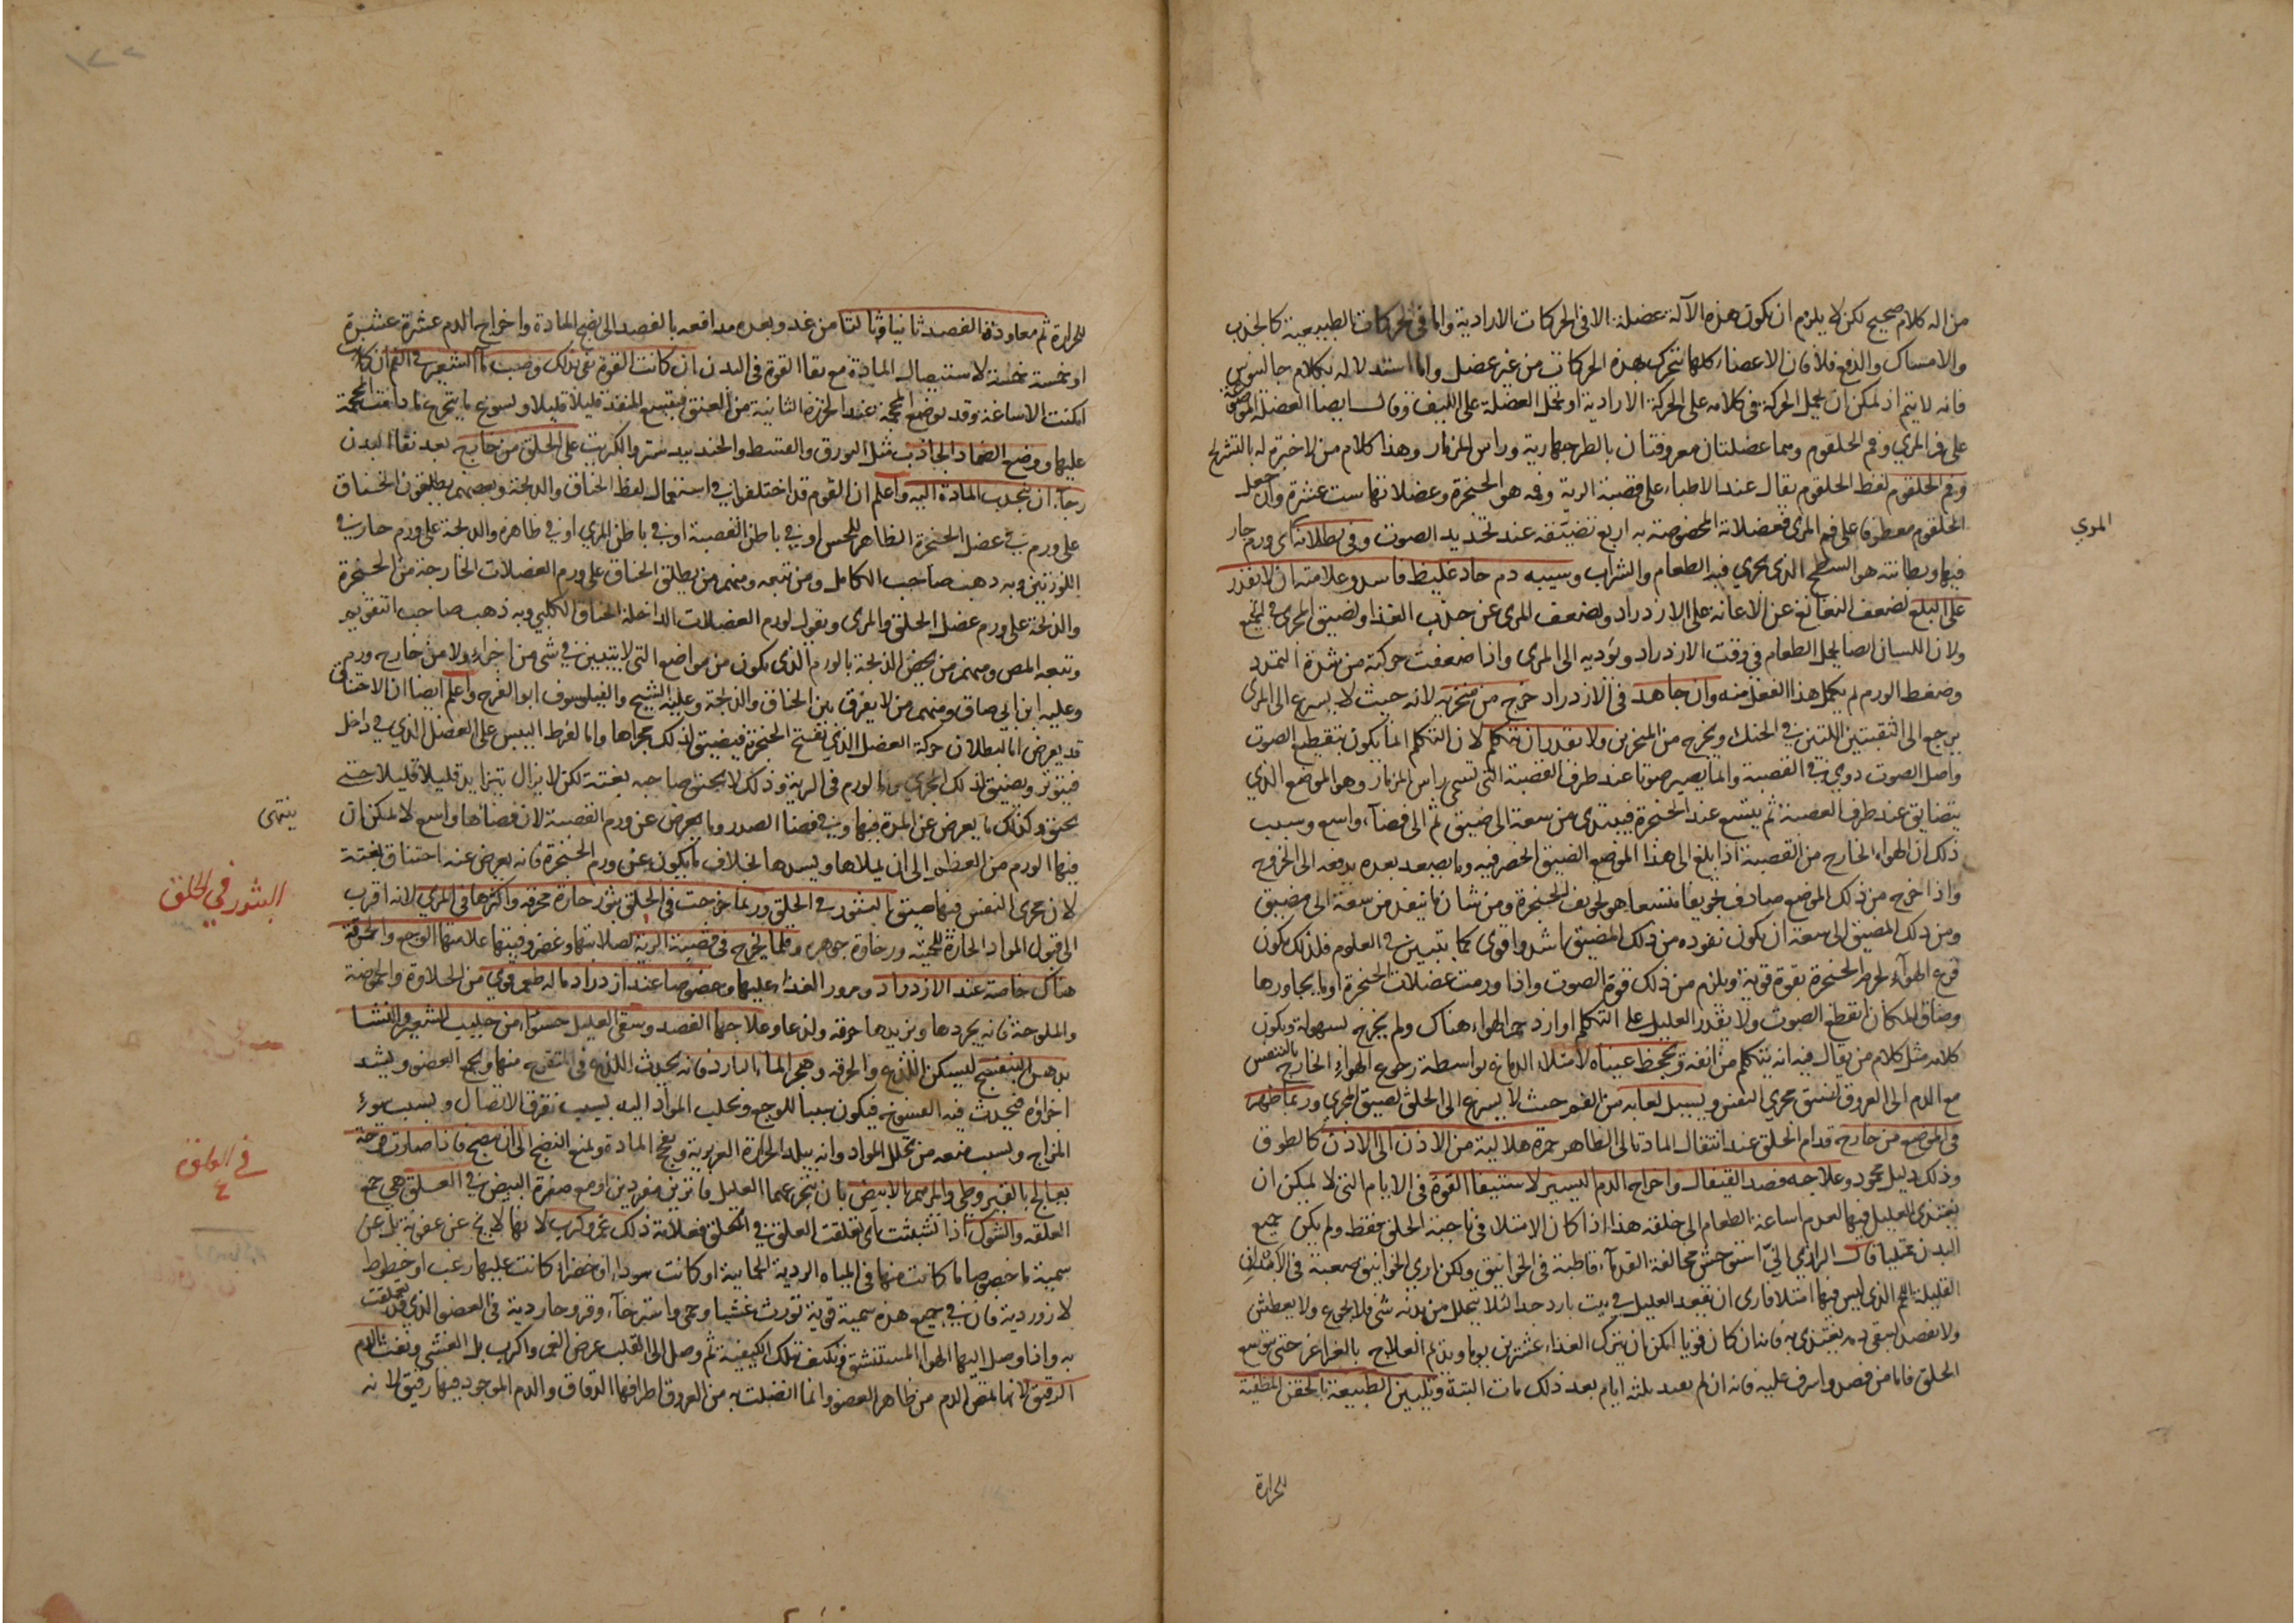 من اله كلام صحيح لكن لا يلزم ان يكون هذه الآلة عضلة الا فى الحركات الارادية واما فى الحركات الطبيعية كالجذب
والامساك والدفع فلا فان الاعضاء كلها تتحرك بهذه الحركات من غير عضل واما استدلاله بكلام جالينوس
فانه لا يتم اذ يمكن ان يحمل الحركة فى كلامه على الحركة الارادية او يحمل العضلة على الليف وقال ايضا العضلة الموضوعة
على فم المري وفم الحلقوم وهما عضلتان معروفتان بالطرجهارية وراس المزمار وهذا كلام من لا خبرة له بالتشريح
وفم الحلقوم لفظ الحلقوم يقال عند الاطباء على قصبة الرية وفمه هو الحنجرة وعضلاتها ست عشرة وان جعل
الحلقوم معطوفا على فم المرى فعضلاته المخصوصة به اربع تضيقه عند تحديد الصوت وفى بطلانه اى ورم حار
المري
فيها وبطانته هو السطح الذى يجري فيه الطعام والشراب وسببه دم حاد غليظ فاسد وعلامته ان لا يقدر
على البلع لضعف النغانغ عن الاعانة على الازدراد ولضعف المرى عن جذب الغذا ولضيق المجرى فى الجميع
ولان اللسان ايضا يحيل الطعام فى وقت الازدراد ويؤديه الى المرى واذا ضعفت حركته من شدة التمدد
وضغط الورم لم يكمل هذا الفعل منه وان جاهد فى الازدراد خرج من منخريه لانه حيث لا يسرع الى المرى
يرجع الى الثقبتين اللتين فى الحنك ويخرج من المنخرين ولا يقدر ان يتكلم لان التكلم انما يكون بتقطيع الصوت
واصل الصوت دوي فى القصبة وانما يصير صوتا عند طرف القصبة التى تسمى راس المزمار وهو الموضع الذي
يتضايق عند طرف القصبة ثم يتسع عند الحنجرة فيبتدى من سعة الى ضيق ثم الى فضآء واسع وسبب
ذلك ان الهواء الخارج من القصبة اذا بلغ الى هذا الموضع الضيق انحصر فيه وما يصعد بعده يدفعه الى الخروج
واذا خرج من ذلك الموضع صادف تجويفا متسعا هو تجويف الحنجرة ومن شان ما ينفذ من سعة الى مضيق
ومن ذلك المضيق الى سعة ان يكون نفوذه من ذلك المضيق اشد واقوى كما يتبين فى العلوم فلذلك يكون
قرع الهوآء لجرم الحنجرة بقوة قوية ويلزم من ذلك قوة الصوت واذا ورمت عضلات الحنجرة او ما يجاورها
وضاق المكان انقطع الصوت ولا يقدر العليل على التكلم او ازدحم الهواء هناك ولم يخرج بسهولة ويكون
كلامه مثل كلام من يقال فيه انه يتكلم من انفه وتجحظ عيناه لامتلاء الدماغ بواسطة رجوع الهواء الخارج بالتنفس
مع الدم الى العروق لضيق مجرى النفس ويسيل لعابه من الفم حيث لا يسرع الى الحلق لضيق المجرى وربما ظهر
فى الموضع من خارج قدام الحلق عند انتقال المادة الى الظاهر حمرة هلالية من الاذن الى الاذن كالطوق
وذلك دليل محمود وعلاجه فصد القيفال واخراج الدم اليسير لاستبقاء القوة فى الايام التى لا يمكن ان
يغتذى العليل فيها لعدم اساغة الطعام الى خلقه هذا اذا كان الامتلاء فى ناحية الحلق فقط ولم يكن جميع
البدن ممتليا قال الرازي انى استوحش مخالفة القدمآء قاطبة فى الخوانيق ولكن ارى الخوانيق صعبة فى الابدان
القليلة الدم الذى ليس فيها امتلا فارى ان يقعد العليل فى بيت بارد جدا لئلا يتحلل من بدنه شى فلا يجوع ولا يعطش
ولا يفصد ليبقى دمه يغتذى به فان كان قويا امكن ان يترك الغذاء عشرين يوما ويدم العلاج بالغراغر حتى يتوسع
الحلق فاما من فصد واسرف عليه فانه ان لم يغذ بعد ثلثة ايام بعد ذلك مات البتة وتليين الطبيعة بالحقن المطفية
للحرارة
للحرارة ثم معاودة الفصد ثانيا وثالثا من غد وبعده مدافعه بالفصد الى نضج المادة واخراج الدم عشرة عشرة
او خمسة خمسة لاستيصال المادة مع بقا القوة فى البدن ان كانت القوة تفى بذلك وصب مآ الشعير فى الفم ان كان
امكنت الاساغة وقد يوضع المحجمة عند الخرزة الثانية من العنق فيتسع المنفذ قليلا قليلا ويسوغ ما يتجرع ما دامت المحجمة
عليها ووضع الضماد الجاذب مثل البورق والقسط والجندبيدستر والكبريت على الحلق من خارج بعد نقا البدن
رجآء ان يجذب المادة اليه واعلم ان القوم قد اختلفوا فى استعمال لفظ الخناق والذبحة وبعضهم يطلقون الخناق
على ورم فى عضل الحنجرة الظاهر للحس او فى باطن القصبة او فى باطن المري او فى ظاهره والذبحة على ورم حار فى
اللوزتين وبه ذهب صاحب الكامل ومن تبعه ومنهم من يطلق الخناق على ورم العضلات الخارجة من الحنجرة
والذبحة على ورم عضل الحلق والمرى ويقول لورم العضلات الداخلة الخناق الكلبي وبه ذهب صاحب التقويم
وتبعه المص ومنهم من يخص الذبحة بالورم الذى يكون من مواضع التى لا يتبين فى شى من اجزاء ولا من خارج ورم
وعليه ابن ابي صادق ومنهم من لا يفرق بين الخناق والذبحة وعليه الشيخ والفيلسوف ابو الفرج واعلم ايضا ان الاختناق
قد يعرض اما لبطلان حركة العضل الذى تفتح الحنجرة فيضيق لذلك مجراها واما لفرط اليبس على العضل الذي فى داخل
فيتوتر ويضيق لذلك المجرى واما لورم فى الرية وذلك لا يخنق صاحبه بغتة لكن لا يزال يتزايد قليلا قليلا حتى
يخنق وكذلك ما يعرض عن المدة فيها وفى فضا الصدر وما يعرض عن ورم القصبة لان فضاها واسع لا يمكن ان
ينتهى
فيها الورم من العظم الى ان يملاها ويسدها بخلاف ما يكون عن ورم الحنجرة فانه يعرض عنه اختناق بغتة
لان مجرى النفس فيها ضيق البثور فى الحلق وربما خرجت فى الحلق بثور حارة محرقة واكثرها فى المري لانه اقرب
البثور في الحلق
الى قبول المواد الحارة للحميته ورخاوة جوهره وقلما يخرج فى قصبة الرية لصلابتها وغضروفيتها علامتها الوجع والحرقة
هناك خاصة عند الازدراد ومرور الغذاء عليها وخصوصا عند ازدراد ما له طعم قوى من الحلاوة والحموضة
والملوحة فانه يجردها ويزيدها حرقه ولذعا وعلاجها الفصد وسقى العليل حسوا من حليب الشعير والنشا
بدهن البنفسج ليسكن اللذع والحرقه وهجر الماء البارد فانه يحدث اللذع فى المتقرح منها ويجمع العضو ويشد
اجزاؤه فيحدث فيه العسونة فيكون سببا للوجع ويجلب المواد اليه بسبب تفرق الاتصال وبسبب سوء
المزاج وبسبب منعه من تحلل المواد وانه يبلد الحرارة الغريزية ويفجج المادة ويمنع النضج الى ان ينضج فاذا صارت قرحة
يعالج بالقيروطى والمرهم الابيض بان يتجرعهما العليل فاترين مفردين او مع صفرة البيض فى العلق هى جمع
في العلق
العلقة والشوك اذا تشبثت اى تعلقت العلق فى الحلق فعلامة ذلك غم وكرب لانها لا يخ عن عفونة بل عن
سمية ما خصوصا ما كانت منها فى المياه الردية الحمائية او كانت سودا او خضراء كانت عليها زغب او خطوط
لازوردية فان فى جميع هذه سمية قوية تورث غشيا وحمى واسترخآء وقروحا ردية فى العضو الذى قد تعلقت
به واذا وصل اليها الهواء المستنشق وتكيف بتلك الكيفية ثم وصل الى القلب عرض الغم واكرب بل الغشى ونفث الدم
الرقيق لانها تمتص الدم من ظاهر العضو وانما اتصلت به من العروق اطرافها الدقاق والدم الموجود فيها رقيق لانه